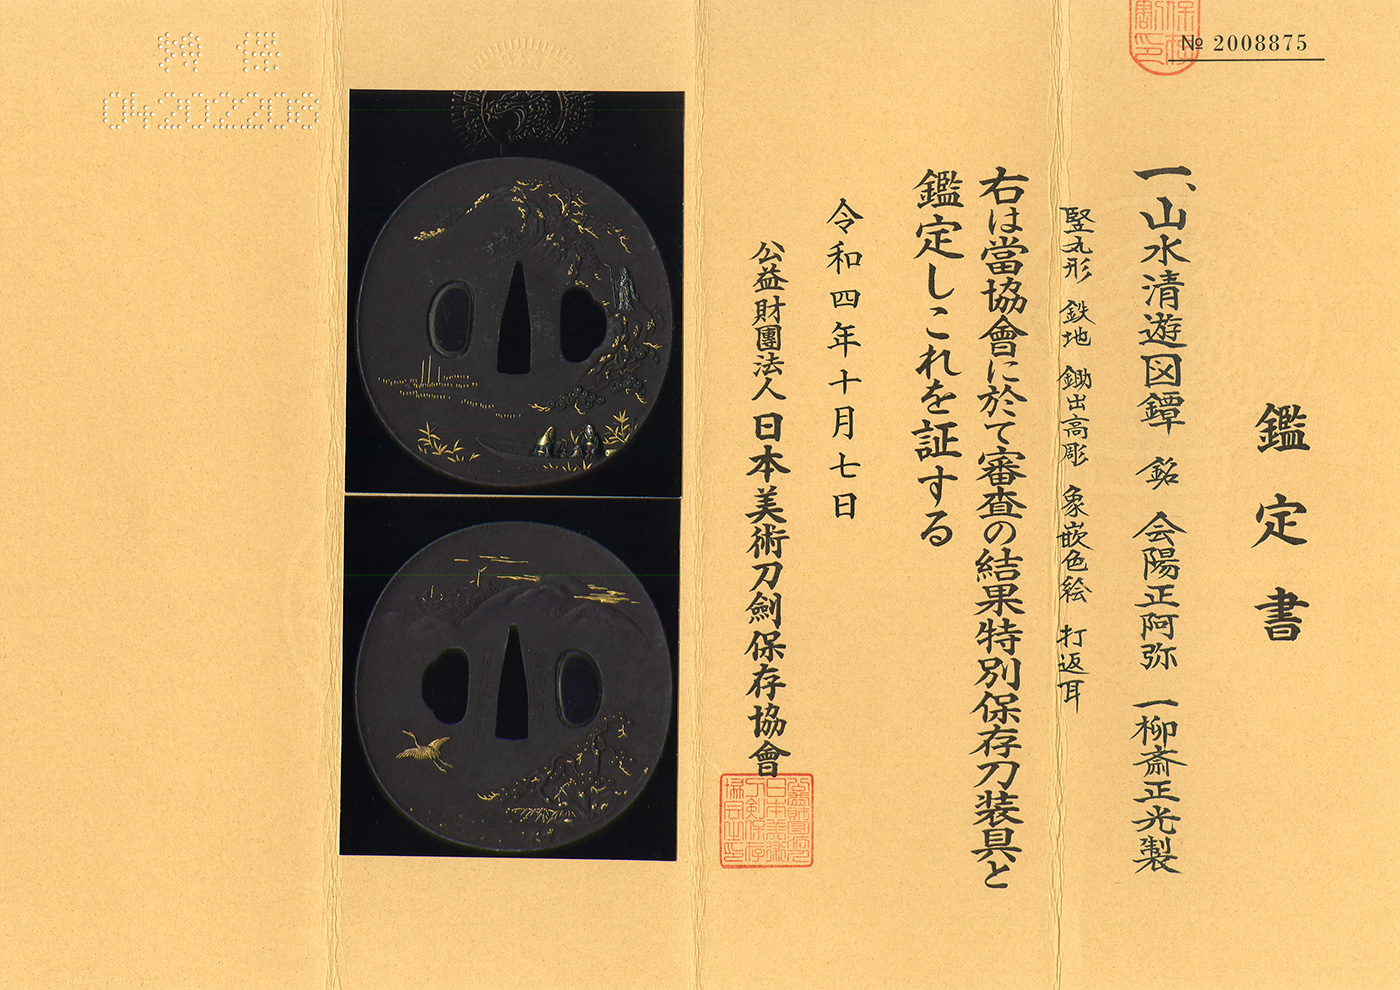 № 2008875
鑑定書
一、山水清遊図鐔 銘 会陽正阿弥 一柳斎正光製
竪丸形 鉄地 鋤出高彫 象嵌色絵 打返耳
右は當協會に於て審査の結果特別保存刀装具と
鑑定しこれを証する
令和四年十月七日
公益財團法人 日本美術刀劍保存協會
04202208